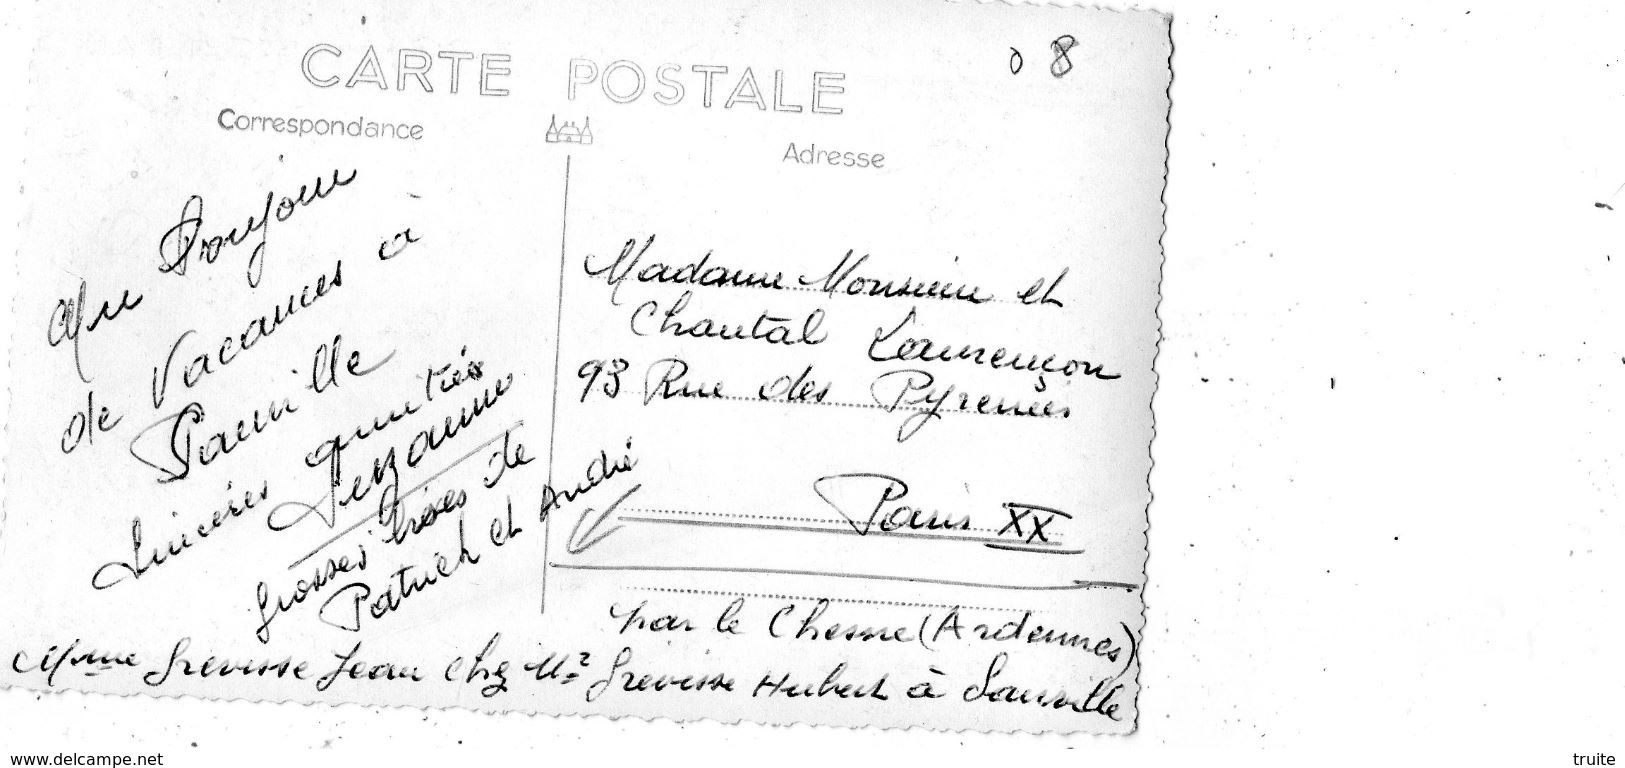 CARTE POSTALE
08
Correspondance
Adresse
Un Bonjour
de Vacances à
Sauville
Sincères amitiés
Suzanne
Grosses bises de
Patrick et André
Madame Monsieur et
Chantal Laurençon
93 Rue des Pyrenées
Paris XX
par le Chesne (Ardennes)
Mme Grevisse Jean chez Mr Grevisse Hubert à Sauville
www.delcampe.net
truite